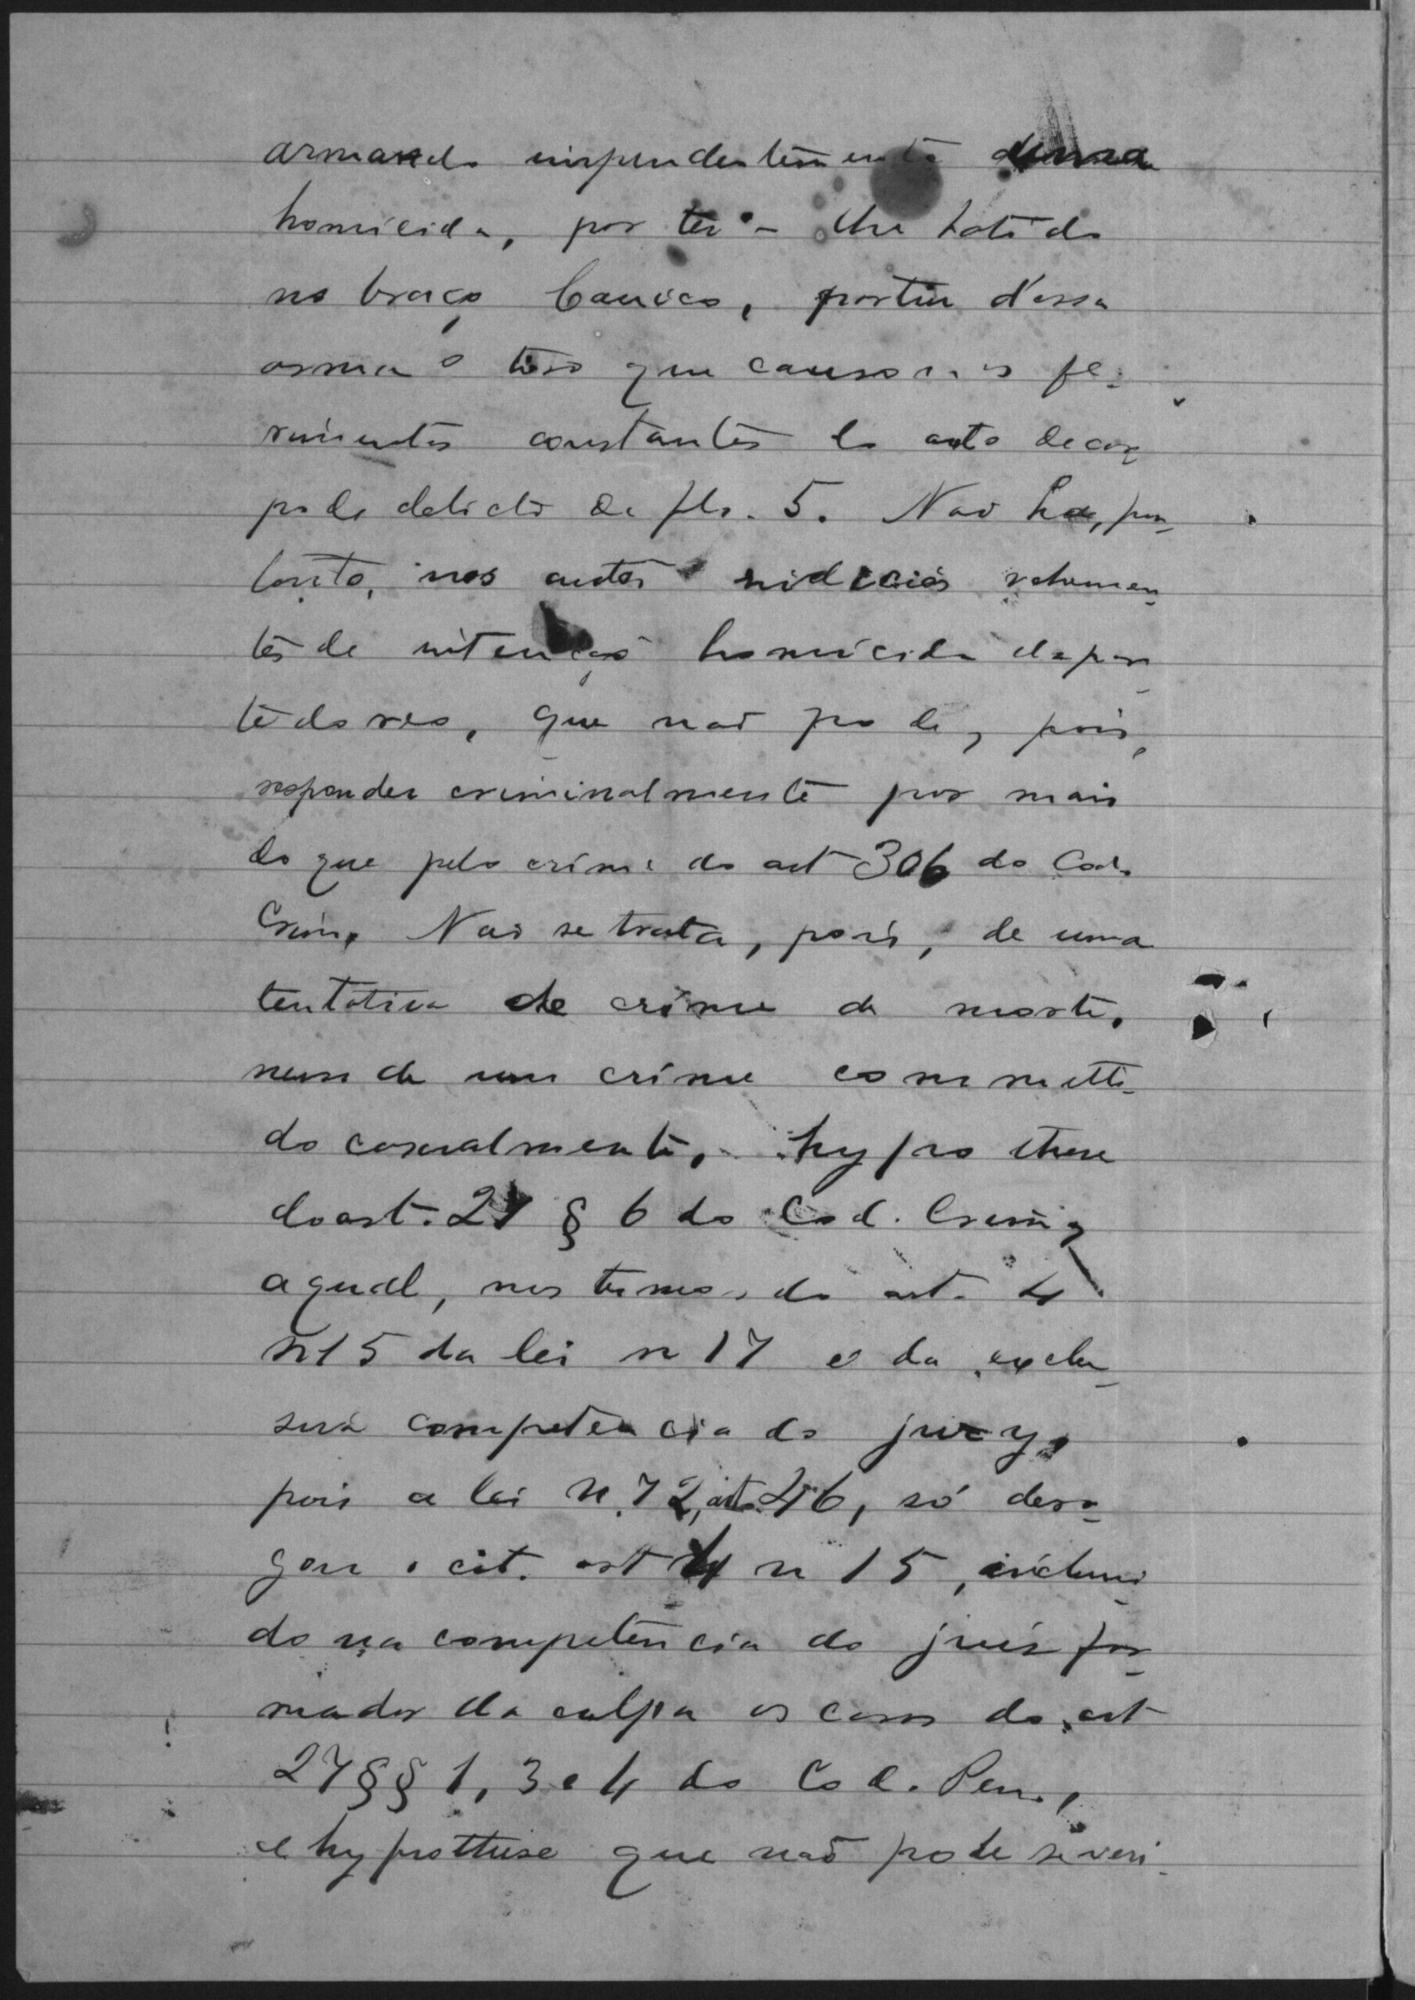 armando imprudentemente arma
homicida, por ter-lhe batido
no braço Canico, partiu d'essa
arma o tiro que causou os fe-
rimentos constantes do auto de cor-
po de delicto de fls. 5. Não ha, por-
tanto, nos autos indicios vehemen-
tes de intenção homicida da par-
te do reo, que não pode, pois,
responder criminalmente por mais
do que pelo crime do art 306 do Cod.
Crim. Não se trata, pois, de uma
tentativa de crime de morte,
nem de um crime commetti-
do casualmente, hypothese
do art. 27 § 6 do Cod. Crim,
a qual, nos termos do art. 4
n 15 da lei n 17 é da exclu-
siva competencia do jury,
pois a lei n. 72, art. 46, só dero-
gou o cit. art 4 n 15, incluin-
do na competencia do juiz for-
mador da culpa os casos do art
27 §§ 1, 3 e 4 do Cod. Pen.,
e hypothese que não pode se veri-